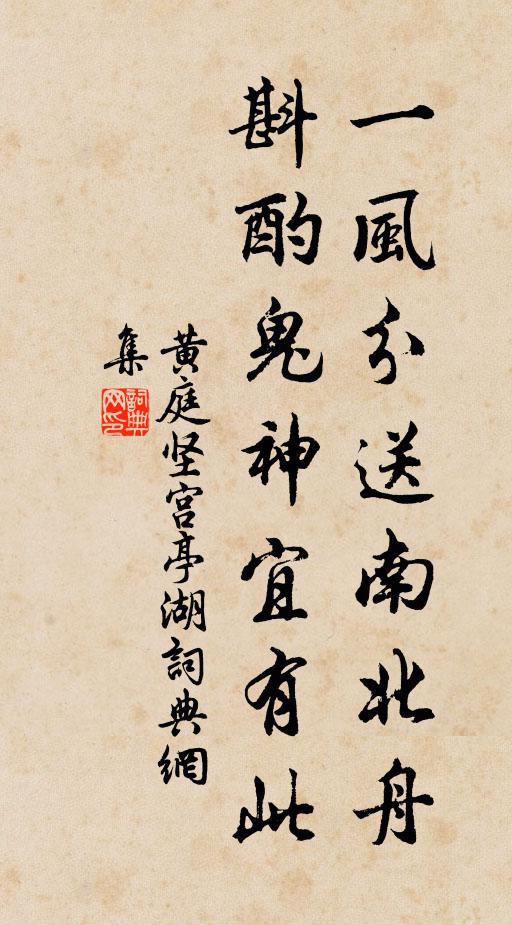 一風分送南北舟
斟酌鬼神宜有此
黄庭坚宫亭湖詞典網
集
詞典網印